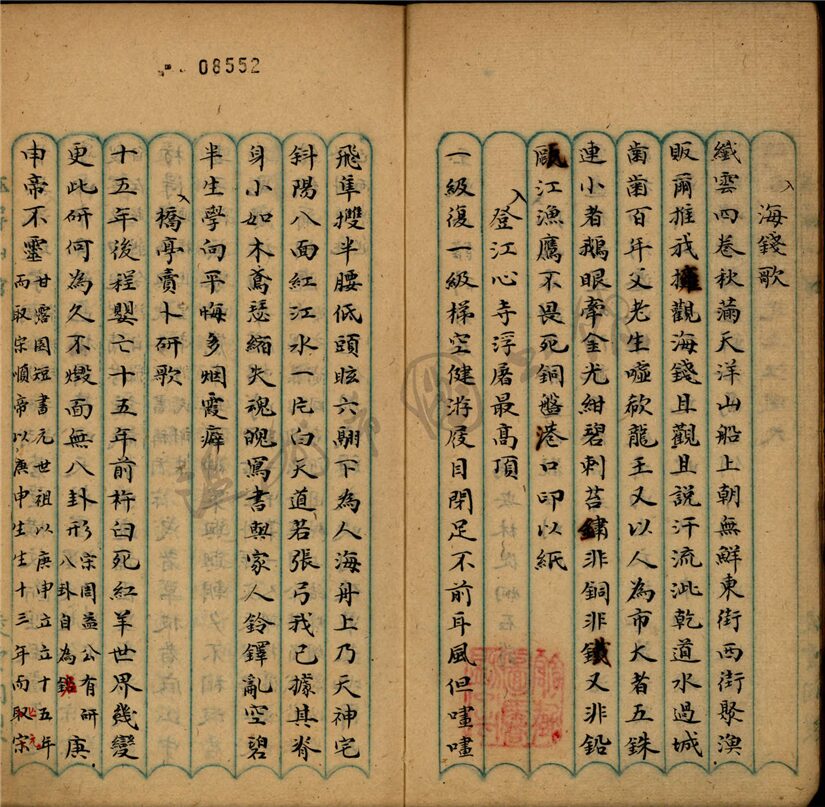 海錢歌
纖雲四卷秋滿天洋山船上朝無鮮東街西街聚漁
販爾推我擁觀海錢且觀且說汗流泚乾道水過城
崮崮百年父老生噓欷龍王又以人為市大者五銖
連小者鵝眼牽金光紺碧刺苔鏽非銅非鐵又非鉛
甌江漁鷹不畏死銅盤港口叩以紙
登江心寺浮屠最高頂
一級復一級梯空健游屐目閉足不前耳風但嚍嚍
08552
飛隼攖半腰低頭眩六翮下為人海舟上乃天神宅
斜陽八面紅江水一片白天道若張弓我已據其脊
身小如木鳶惄緬失魂魄寫書與家人鈴鐸亂空碧
半生學向平悔多烟霞癖
橋亭賣卜研歌
十五年後程嬰亡十五年前杵臼死紅羊世界幾變
更此研何為久不燬面無八卦形宗周益公有研八卦自為鑑庚
申帝不靈甘露園短書元世祖以庚申立立十五年而取宗順帝以庚申生生十三年而取宗